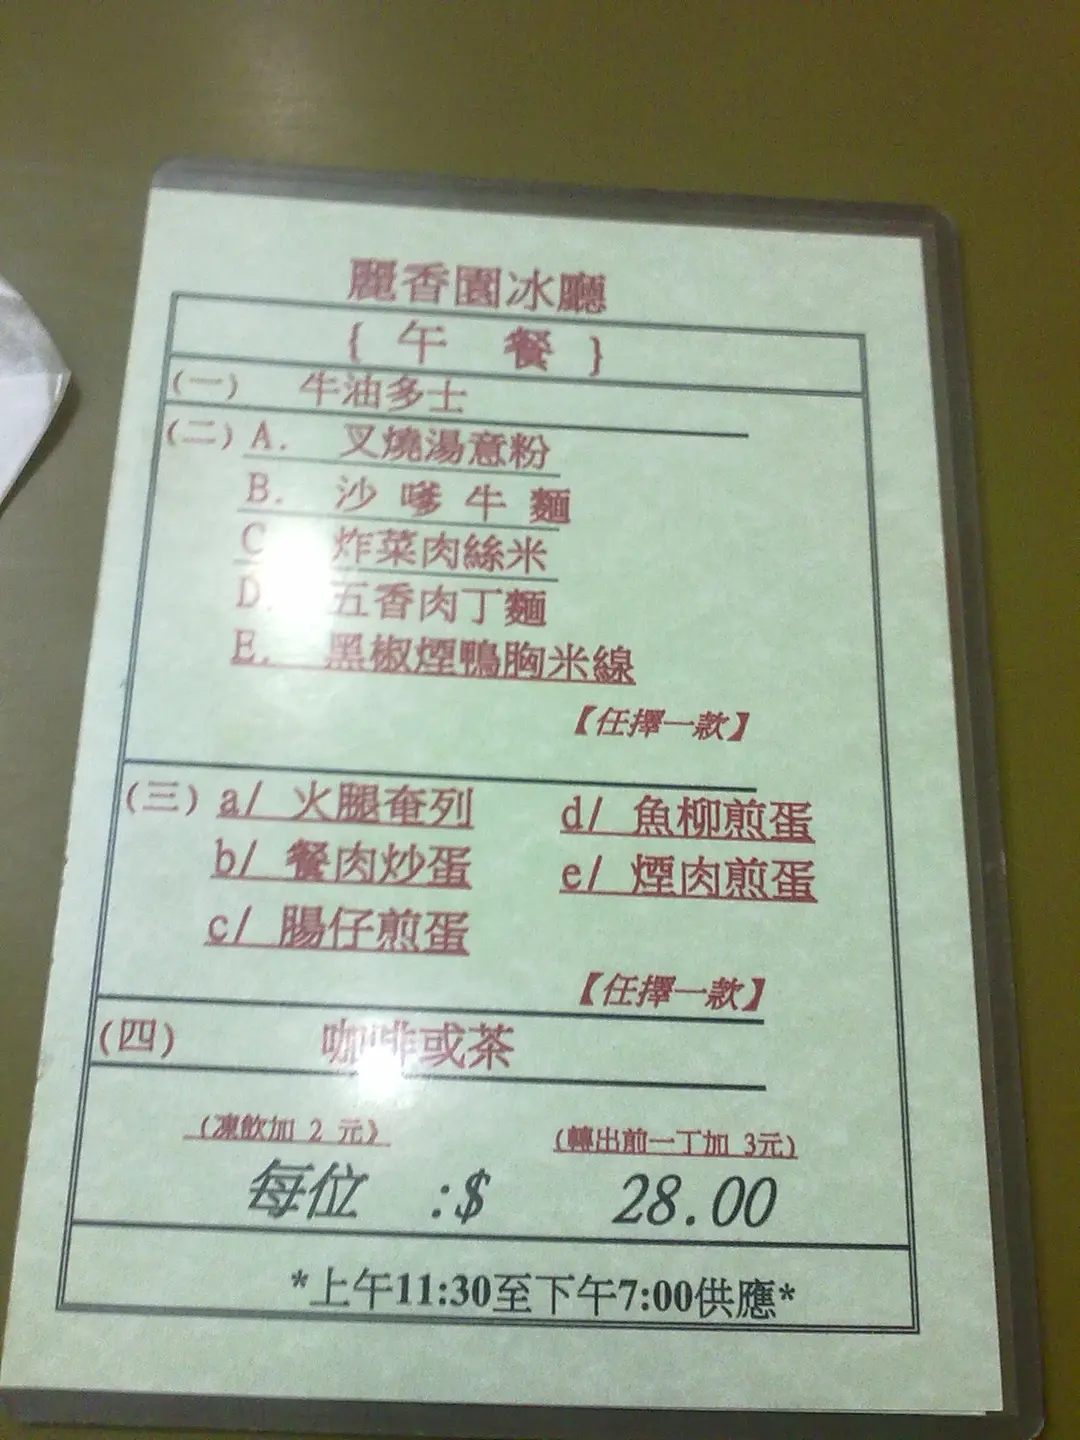 麗香園冰廳
{ 午 餐 }
(一) 牛油多士
(二) A. 叉燒湯意粉
B. 沙 嗲 牛 麵
C 炸菜肉絲米
D. 五香肉丁麵
E. 黑椒煙鴨胸米線
【任擇一款】
(三) a/ 火腿奄列 d/ 魚柳煎蛋
b/ 餐肉炒蛋 e/ 煙肉煎蛋
c/ 腸仔煎蛋
【任擇一款】
(四) 咖啡或茶
(凍飲加 2 元) (轉出前一丁加 3元)
每位 :$ 28.00
*上午11:30至下午7:00供應*